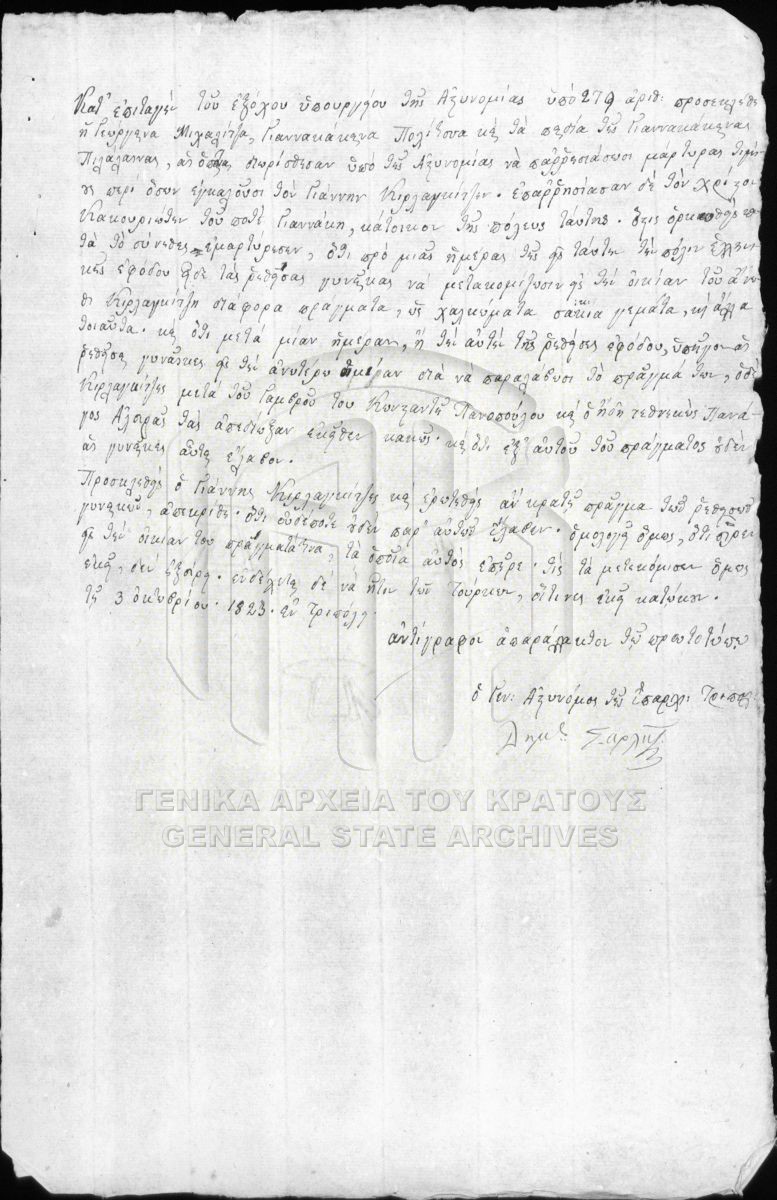 Κατ' επιταγήν του εξόχου υπουργείου της Αστυνομίας υπό 279 αριθ: προσεκλήθη
η Γεώργενα Μιχαλίτζα, Γιαννακάκενα Πολίτισσα κ τα παιδία της Γιαννακάκενας
διωρίσθησαν υπό της Αστυνομίας να παρρησιάσωσι μάρτυρας
περί όσων εγκαλούσι τον Γιάννην Κιρλαγκίτζην. επαρρησίασαν δε τον
Κακουριώτην του ποτέ Γιαννάκη, κάτοικον της πόλεως ταύτης.
το σύνηθες εμαρτύρησεν, ότι προ μιας ημέρας της εις ταύτην την πόλιν
εφόδου είδε τας ρηθείσας γυναίκας να μετακομίζωσιν εις την οικίαν του
Κιρλαγκίτζη διάφορα πράγματα, ως χαλκώματα σακκία γεμάτα, κ άλλα
τοιαύτα. κ ότι μετά μίαν ημέραν, ή την αυτήν της ρηθείσης εφόδου, υπήγον αι
ρηθείσαι γυναίκες εις την ανωτέρω διά να παραλάβωσι το πράγμα των, ο δε
Κιρλαγκίτζης μετά του γαμβρού του Κωνσταντή Πανοπούλου κ ο ήδη τεθνηκώς Πανά-
γος τας απεδίωξαν εκείθεν κακώς. κ ότι εξ αυτού του πράγματος ουδέν
αι γυναίκες αύται έλαβον.
Προσκληθείς ο Γιάννης Κιρλαγκίτζης κ ερωτηθείς αν κρατεί πράγμα των ρηθεισών
γυναικών, απεκρίθη ότι ουδέποτε ουδέν παρ' αυτών έλαβεν. ομολογεί όμως, ότι
εις την οικίαν του πραγματάκια, τα οποία αυτός επήρε. τις τα μετεκόμισεν όμως
εκεί, δεν εξεύρει. ενδέχεται δε να ήτον των Τούρκων, οίτινες εκεί κατώκουν.
τη 3 οκτωβρίου. 1823. εν Τριπόλει
αντίγραφον απαράλλακτον του πρωτοτύπου
ο Γεν: Αστυνόμος της Επαρχ:
ΓΕΝΙΚΑ ΑΡΧΕΙΑ ΤΟΥ ΚΡΑΤΟΥΣ
GENERAL STATE ARCHIVES